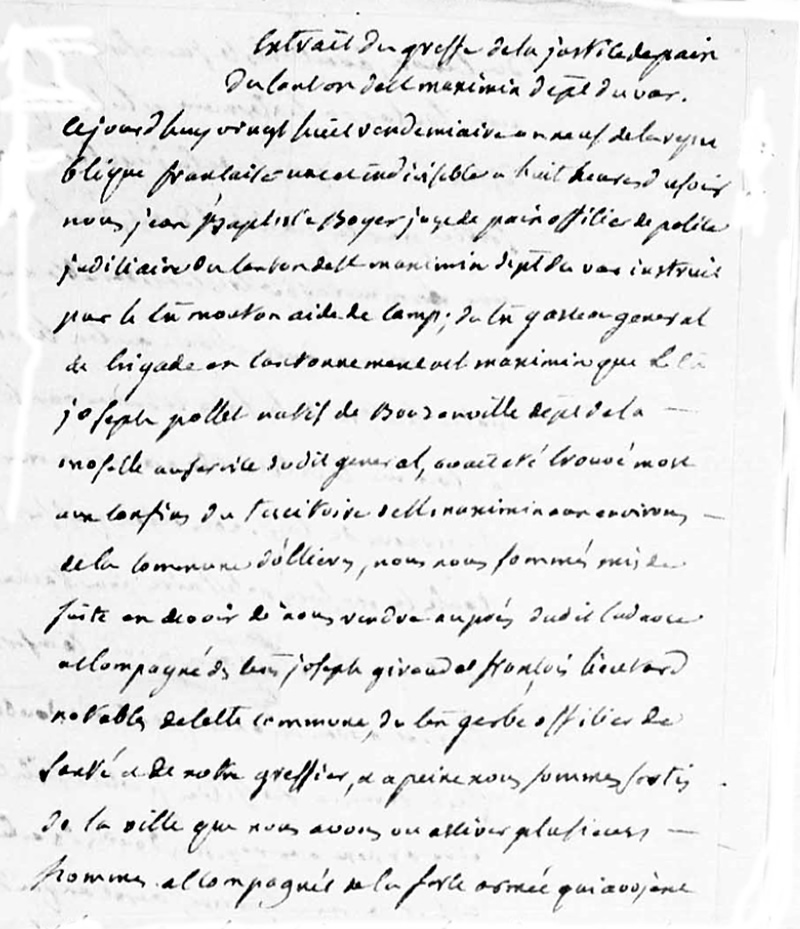 Extrait du greffe de la justice de paix
du canton de St maximin dept du var.
Cejourd'huy vingt huit vendemiaire an neuf de la repu
blique francaise une et indivisible a huit heures du soir
nous jean Baptiste Boyer juge de paix officier de police
judiciaire du canton de St maximin dept du var instruit
par le cn mouton aide de camp, du cn gareau general
de brigade en cantonnement a St maximin que le cn
joseph pollet natif de Bouzonville dept de la —
moselle au service dudit general, avait eté trouvé mort
aux confins du territoire de St maximin aux environs —
de la commune d'ollieres, nous nous sommes mis de
suite en devoir de nous rendre auprés dudit cadavre
accompagné des cens joseph giraud et françois lieutard
notables de cette commune, du cn gerbe, officier de
santé et de notre greffier, et a peine nous sommes sortis
de la ville que nous avons vu arriver plusieurs —
hommes accompagnés de la force armée qui avoient